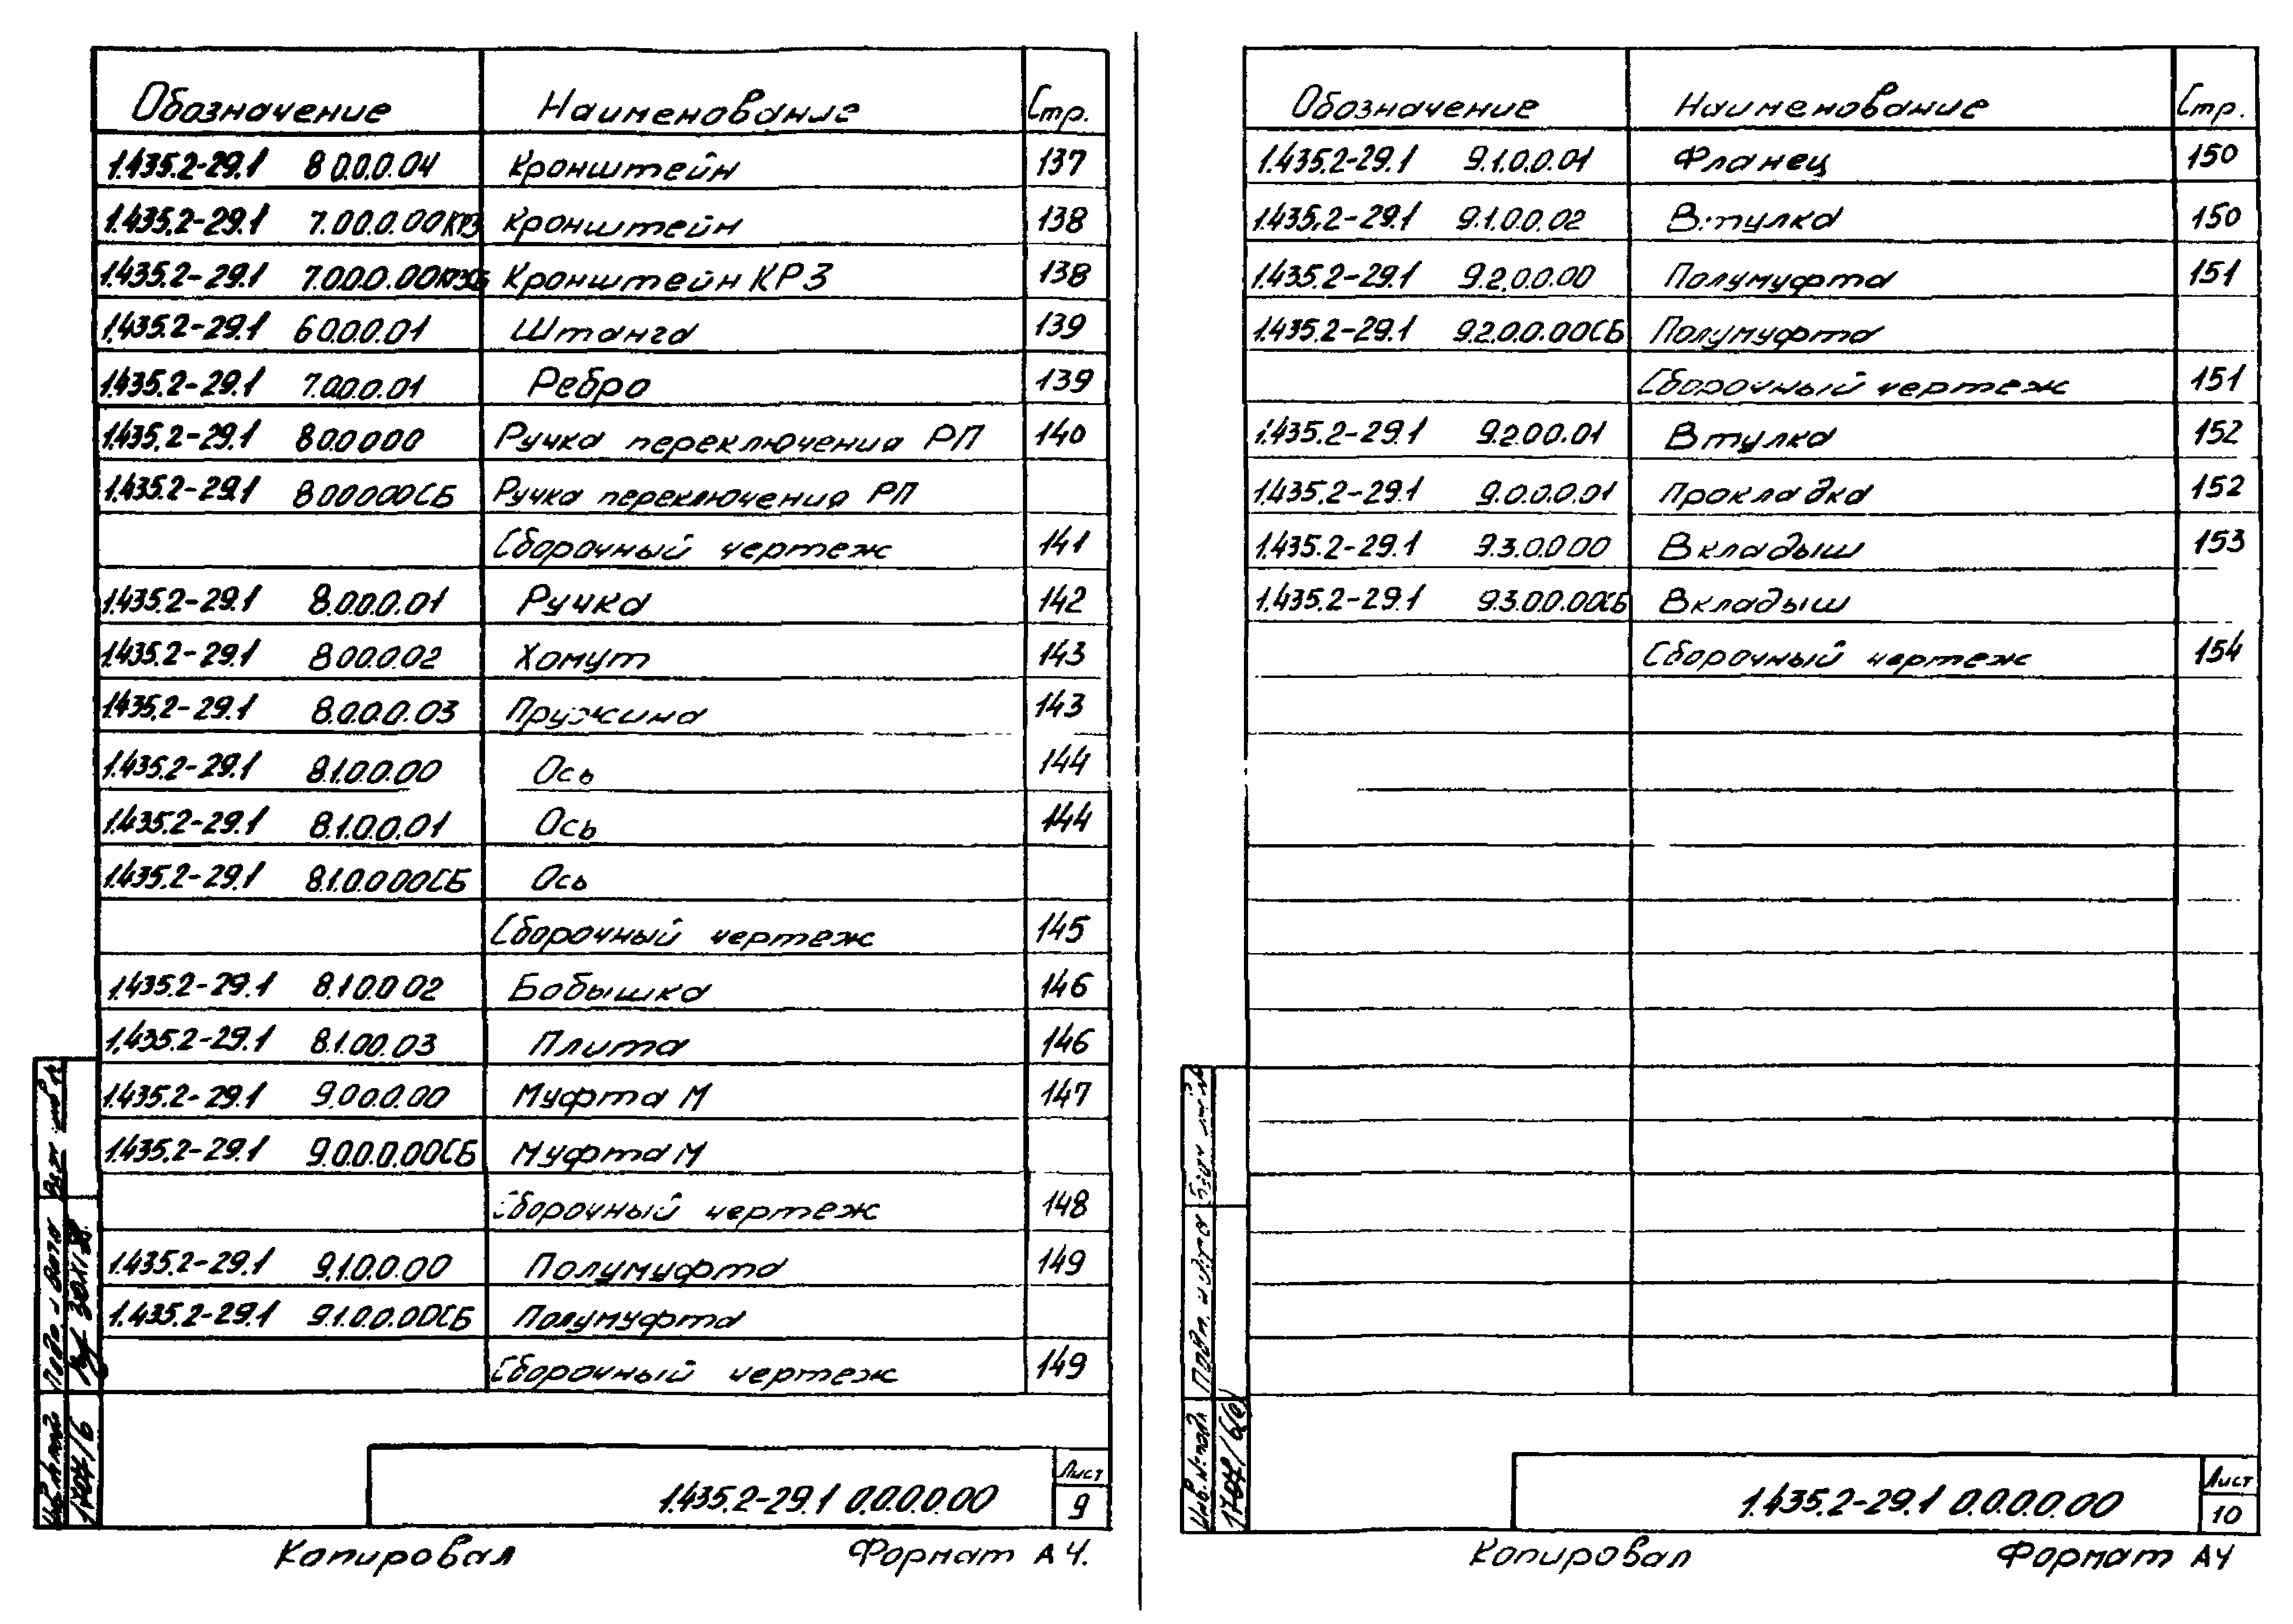 Обозначение Наименование Стр.
1.435.2-29.1 8.0.0.0.04 Кронштейн 137
1.435.2-29.1 7.0.0.0.00КР3 Кронштейн 138
1.435.2-29.1 7.0.0.0.00КР3СБ Кронштейн КР3 138
1.435.2-29.1 6.0.0.0.01 Штанга 139
1.435.2-29.1 7.0.0.0.01 Ребро 139
1.435.2-29.1 8.0.0.0.00 Ручка переключения РП 140
1.435.2-29.1 8.0.0.0.00СБ Ручка переключения РП
Сборочный чертеж 141
1.435.2-29.1 8.0.0.0.01 Ручка 142
1.435.2-29.1 8.0.0.0.02 Хомут 143
1.435.2-29.1 8.0.0.0.03 Пружина 143
1.435.2-29.1 8.1.0.0.00 Ось 144
1.435.2-29.1 8.1.0.0.01 Ось 144
1.435.2-29.1 8.1.0.0.00СБ Ось
Сборочный чертеж 145
1.435.2-29.1 8.1.0.0.02 Бобышка 146
1.435.2-29.1 8.1.0.0.03 Плита 146
1.435.2-29.1 9.0.0.0.00 Муфта М 147
1.435.2-29.1 9.0.0.0.00СБ Муфта М
Сборочный чертеж 148
1.435.2-29.1 9.1.0.0.00 Полумуфта 149
1.435.2-29.1 9.1.0.0.00СБ Полумуфта
Сборочный чертеж 149
Инв.№ подл
17047/6
1.435.2-29.1 0.0.0.0.00
Лист
9
Копировал Формат А4.
Обозначение Наименование Стр.
1.435.2-29.1 9.1.0.0.01 Фланец 150
1.435.2-29.1 9.1.0.0.02 Втулка 150
1.435.2-29.1 9.2.0.0.00 Полумуфта 151
1.435.2-29.1 9.2.0.0.00СБ Полумуфта
Сборочный чертеж 151
1.435.2-29.1 9.2.0.0.01 Втулка 152
1.435.2-29.1 9.0.0.0.01 Прокладка 152
1.435.2-29.1 9.3.0.0.00 Вкладыш 153
1.435.2-29.1 9.3.0.0.00СБ Вкладыш
Сборочный чертеж 154
Инв.№ подл
1.435.2-29.1 0.0.0.0.00
Лист
10
Копировал Формат А4